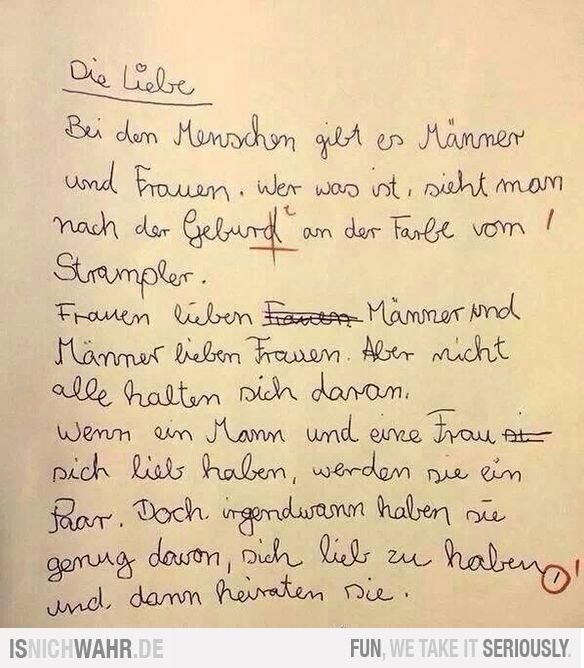 Die Liebe
Bei den Menschen gibt es Männer
und Frauen. Wer was ist, sieht man
nach der Geburd t an der Farbe vom
Strampler.
Frauen lieben Frauen Männer und
Männer lieben Frauen. Aber nicht
alle halten sich daran.
Wenn ein Mann und eine Frau si
sich lieb haben, werden sie ein
Paar. Doch irgendwann haben sie
genug davon, sich lieb zu haben,
und dann heiraten sie.
ISNICHWAHR.DE FUN, WE TAKE IT SERIOUSLY.